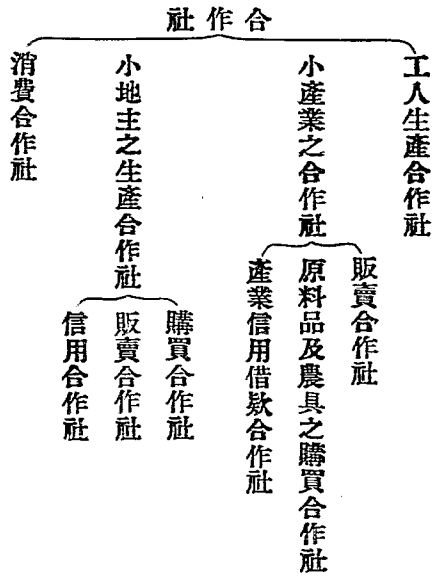 合作社
工人生產合作社
小產業之合作社
販賣合作社
原料品及農具之購買合作社
產業信用借欵合作社
小地主之生產合作社
購買合作社
販賣合作社
信用合作社
消費合作社